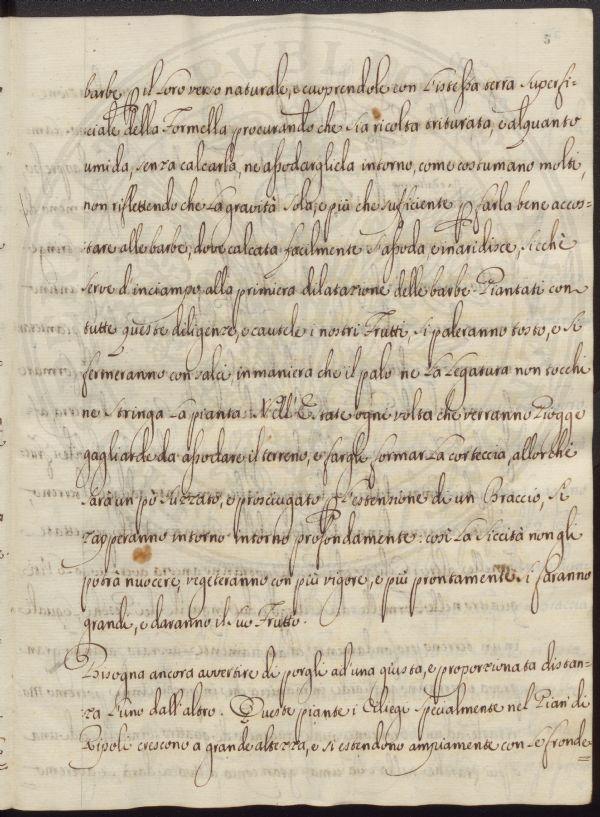 5
barbe, p il loro verso naturale, e cuoprendole con l'istessa terra superfi-
ciale della Formella procurando che sia ricolta triturata, e alquanto
umida, senza calcarla, ne assodargliela intorno, come costumano molti,
non riflettendo che la gravità sola, e più che sufficiente p farla bene accos-
tare alle barbe, dove calcata facilmente s'assoda, e inaridisce, sicchè
serve d'inciampo alla primiera dilatazione delle barbe. Piantati con
tutte queste diligenze, e cautele i nostri Frutti, si paleranno tosto, e si
fermeranno con salci, in maniera che il palo ne la legatura non tocchi
ne stringa la pianta. Nell'Estate ogni volta che verranno Piogge
gagliarde da assodare il terreno, e fargli formar la corteccia, allorchè
sarà un pò suzzato, e prosciugato p l'estensione di un Braccio, si
zapperanno intorno intorno profondamente: così la siccità non gli
potrà nuocere, vegeteranno con più vigore, e più prontamente si faranno
grandi, e daranno il suo Frutto.
Bisogna ancora avvertire di porgli ad una giusta, e proporzionata distan-
za l'uno dall'altro. Queste piante i Ciliegi specialmente nel Pian di
Ripoli crescono a grande altezza, e si estendono ampiamente con le fronde